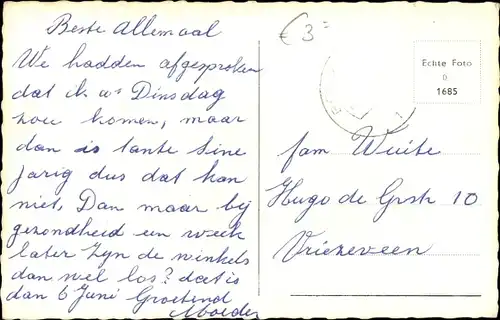 Beste Allemaal
We hadden afgesproken
dat ik a.s Dinsdag
zou komen, maar
dan is tante Sine
jarig dus dat kan
niet, Dan maar bij
gezondheid een week
later Zijn de winkels
dan wel los? dat is
dan 6 Juni Groetend
Moeder
€ 3=
Echte Foto
1685
fam
Hugo de Grstr 10
Vriezeveen